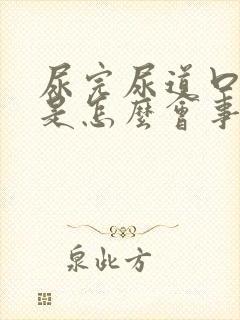 尿完尿道口
是怎麼會事
泉此方